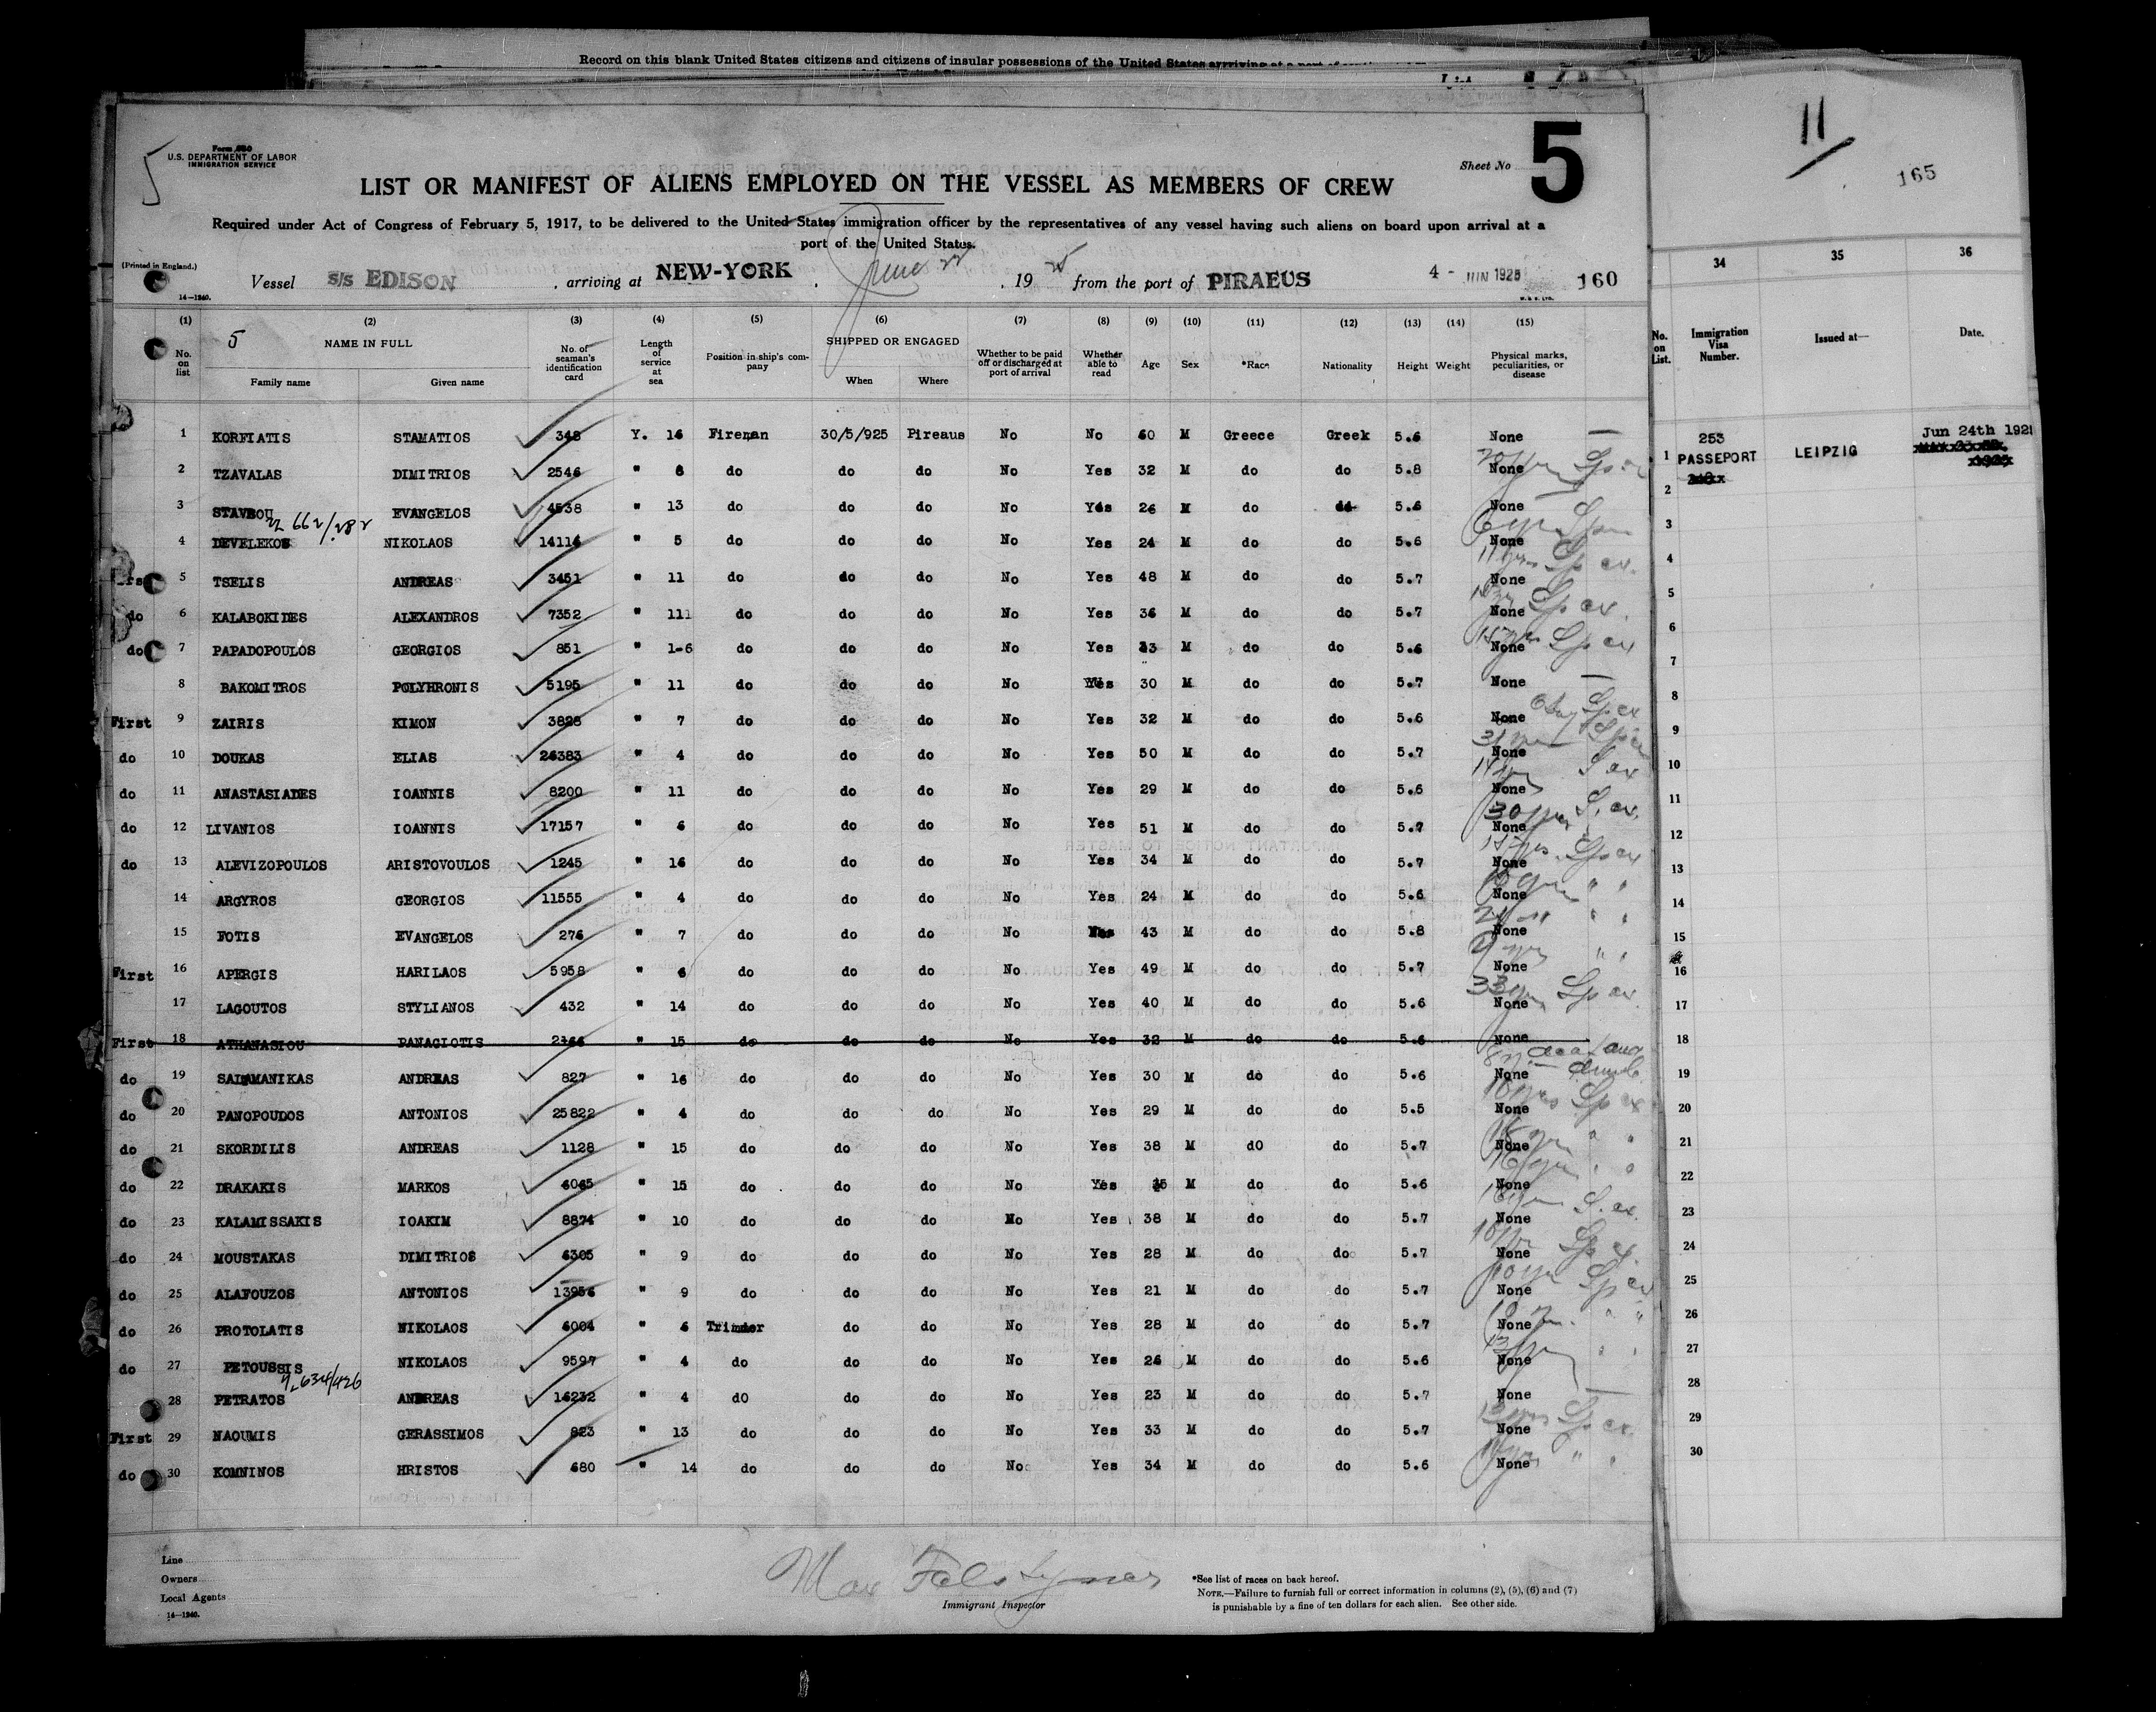 Record on this blank United States citizens and citizens of insular possessions of the United States arriving at a port of
5
Form 680
U.S. DEPARTMENT OF LABOR
IMMIGRATION SERVICE
Sheet No 5
LIST OR MANIFEST OF ALIENS EMPLOYED ON THE VESSEL AS MEMBERS OF CREW
Required under Act of Congress of February 5, 1917, to be delivered to the United States immigration officer by the representatives of any vessel having such aliens on board upon arrival at a
port of the United States.
(Printed in England.)
14—1240.
Vessel S/S EDISON, arriving at NEW-YORK, June 22, 1925 from the port of PIRAEUS 4 - JUN 1925 160
(1) (2) (3) (4) (5) (6) (7) (8) (9) (10) (11) (12) (13) (14) (15)
No. on list 5 NAME IN FULL Family name Given name No. of seaman's identification card Length of service at sea Position in ship's company SHIPPED OR ENGAGED When Where Whether to be paid off or discharged at port of arrival Whether able to read Age Sex *Race Nationality Height Weight Physical marks, peculiarities, or disease
1 KORFIATIS STAMATIOS 348 Y. 16 Fireman 30/5/925 Pireaus No No 60 M Greece Greek 5.6 None
2 TZAVALAS DIMITRIOS 2546 " 8 do do do No Yes 32 M do do 5.8 None
3 STAVROU EVANGELOS 4538 " 13 do do do No Yes 26 M do do 5.6 None
4 DEVELEKOS NIKOLAOS 14114 " 5 do do do No Yes 24 M do do 5.6 None
5 TSELIS ANDREAS 3451 " 11 do do do No Yes 48 M do do 5.7 None
do 6 KALABOKIDES ALEXANDROS 7352 " 111 do do do No Yes 36 M do do 5.7 None
do 7 PAPADOPOULOS GEORGIOS 851 " 1-6 do do do No Yes 33 M do do 5.6 None
8 BAKOMITROS POLYHRONIS 5195 " 11 do do do No Yes 30 M do do 5.7 None
First 9 ZAIRIS KIMON 3828 " 7 do do do No Yes 32 M do do 5.6 None
do 10 DOUKAS ELIAS 26383 " 4 do do do No Yes 50 M do do 5.7 None
do 11 ANASTASIADES IOANNIS 8200 " 11 do do do No Yes 29 M do do 5.6 None
do 12 LIVANIOS IOANNIS 17157 " 6 do do do No Yes 51 M do do 5.7 None
do 13 ALEVIZOPOULOS ARISTOVOULOS 1245 " 16 do do do No Yes 34 M do do 5.7 None
14 ARGYROS GEORGIOS 11555 " 4 do do do No Yes 24 M do do 5.6 None
15 FOTIS EVANGELOS 276 " 7 do do do No 43 M do do 5.8 None
First 16 APERGIS HARILAOS 5958 " 6 do do do No Yes 49 M do do 5.7 None
17 LAGOUTOS STYLIANOS 432 " 14 do do do No Yes 40 M do do 5.6 None
First 18 ATHANASIOU PANAGIOTIS 2166 " 15 do do do No Yes 32 M do do 5.6 None
do 19 SALAMANIKAS ANDREAS 827 " 16 do do do No Yes 30 M do do 5.6 None deaf and dumb
do 20 PANOPOUDOS ANTONIOS 25822 " 4 do do do No Yes 29 M do do 5.5 None
do 21 SKORDILIS ANDREAS 1128 " 15 do do do No Yes 38 M dO do 5.7 None
do 22 DRAKAKIS MARKOS 6065 " 15 do do do No Yes M do do 5.6 None
do 23 KALAMISSAKIS IOAKIM 8874 " 10 do do do No Yes 38 M do do 5.7 None
do 24 MOUSTAKAS DIMITRIOS 6305 " 9 do do do No Yes 28 M do do 5.7 None
do 25 ALAFOUZOS ANTONIOS 13956 " 9 do do do No Yes 21 M do do 5.7 None
do 26 PROTOLATIS NIKOLAOS 6004 " 6 Trimmer do do No Yes 28 M do do 5.7 None
do 27 PETOUSSIS NIKOLAOS 9597 " 4 do do do No Yes 26 M do do 5.6 None
28 PETRATOS ANDREAS 16232 " 4 dO do do No Yes 23 M do do 5.7 None
First 29 NAOUMIS GERASSIMOS 823 " 13 do do do No Yes 33 M do do 5.7 None
do 30 KOMNINOS HRISTOS 680 " 14 do do do No Yes 34 M do do 5.6 None
Line
Owners
Local Agents
14—1240.
Max
Immigrant Inspector
*See list of races on back hereof.
NOTE.—Failure to furnish full or correct information in columns (2), (5), (6) and (7)
is punishable by a fine of ten dollars for each alien. See other side.
11
165
34 35 36
No. on List. Immigration Visa Number. Issued at— Date.
253 Jun 24th 192
1 PASSEPORT LEIPZIG
2
3
4
5
6
7
8
9
10
11
12
13
14
15
16
17
18
19
20
21
22
23
24
25
26
27
28
29
30